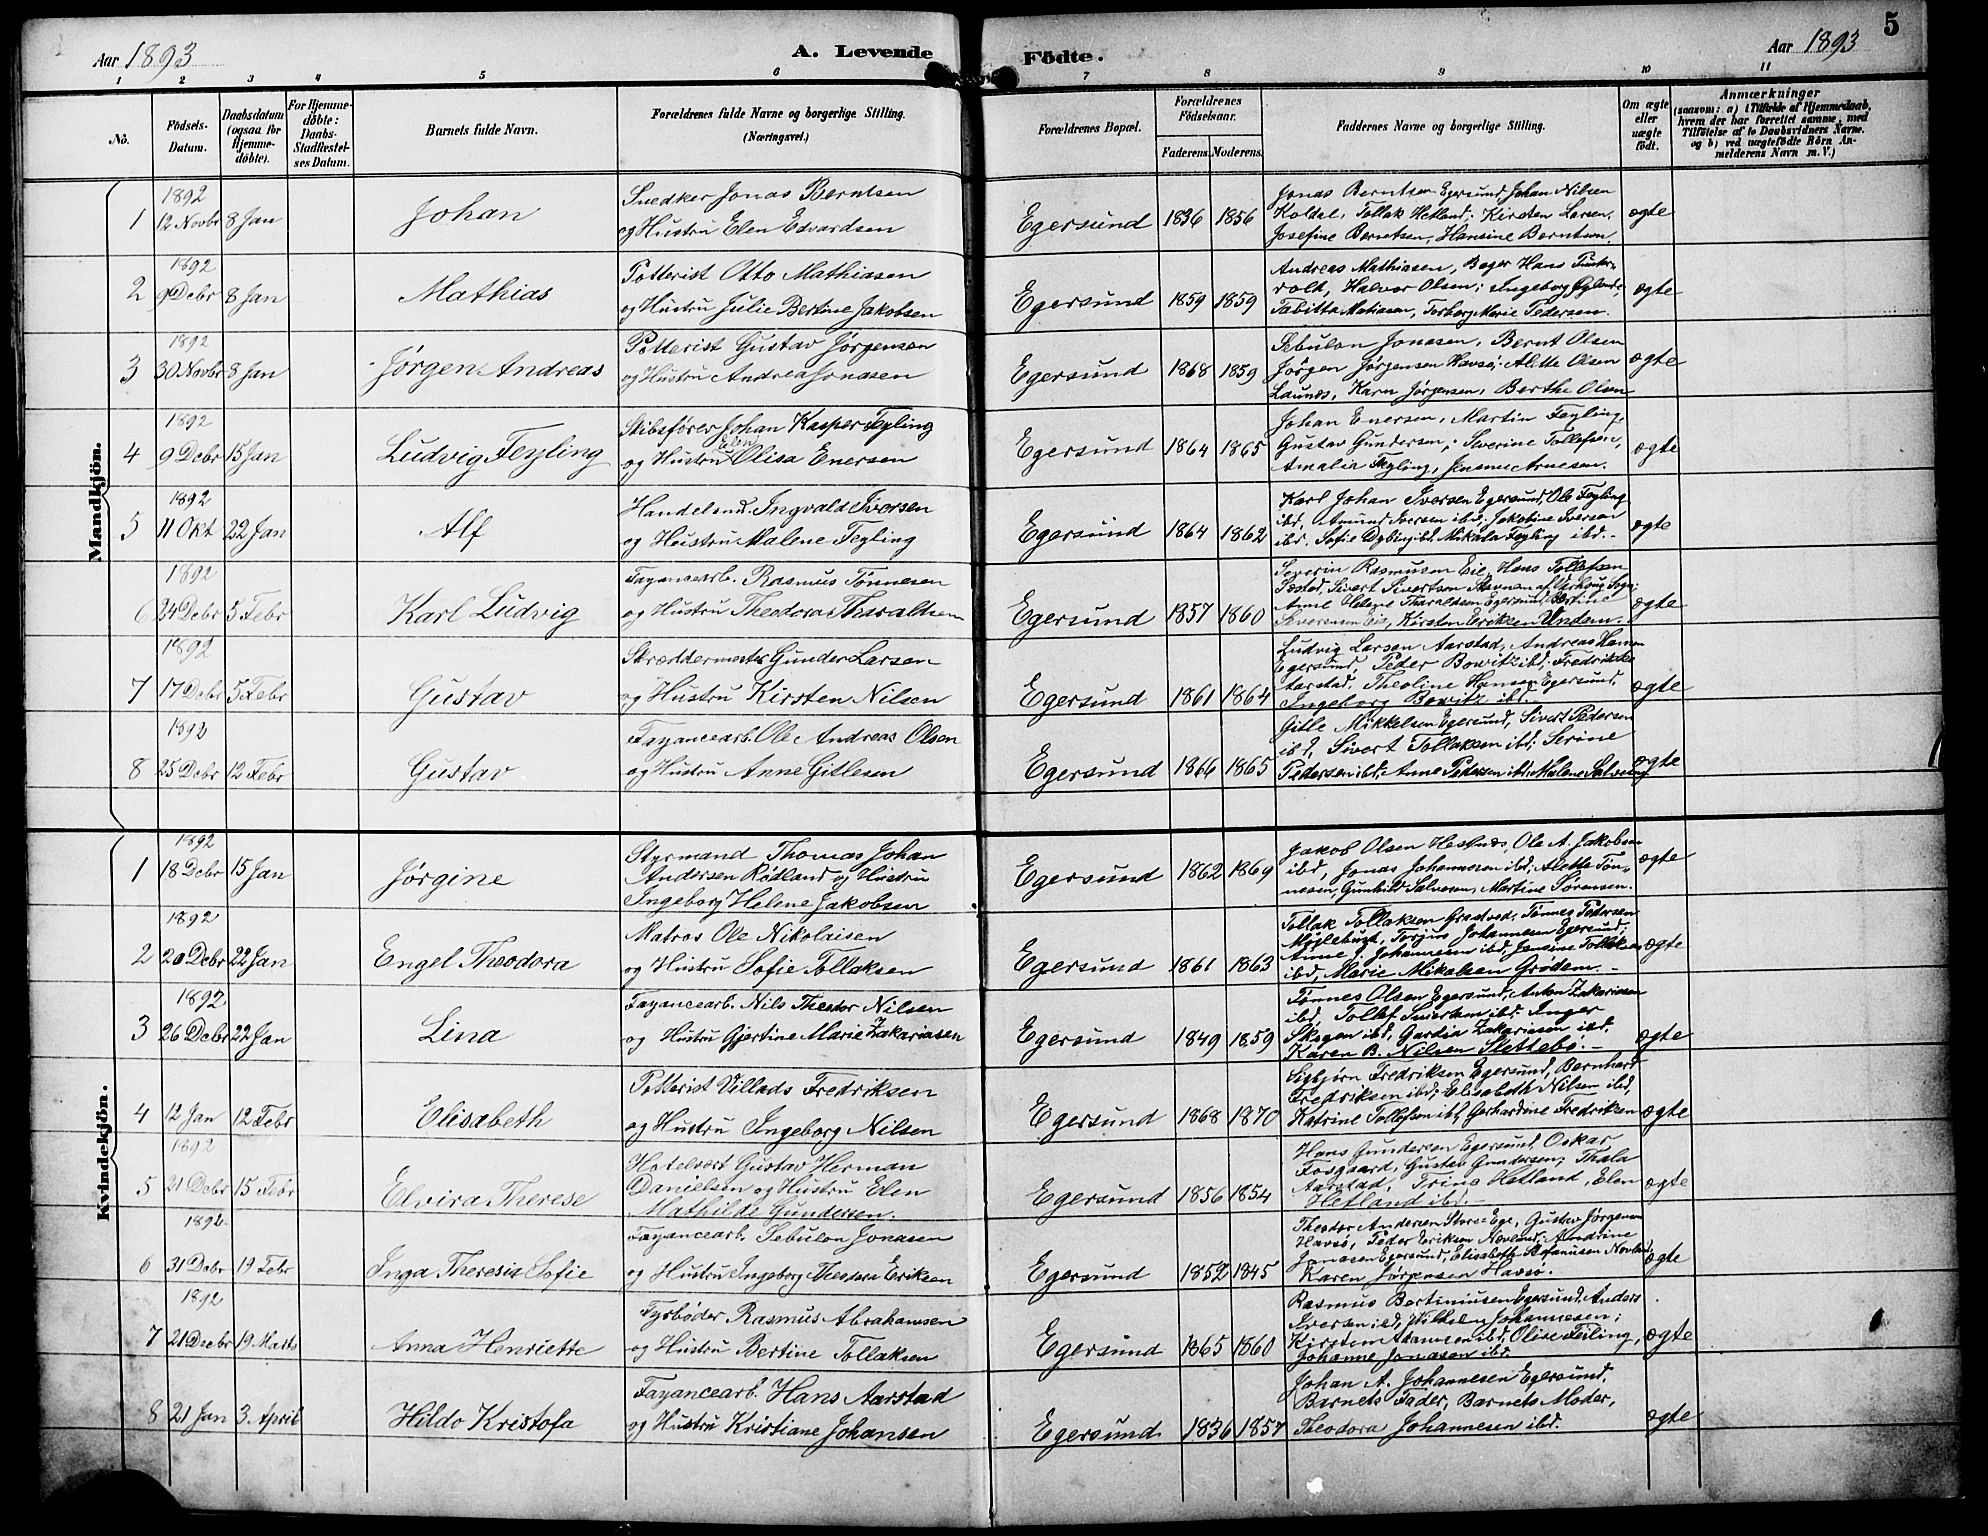 Aar 1893
A. Levende
Födte.
Aar 1893
5
1 2 3 4 5 6 7 8 9 10 11
No.
Födsels-
Datum.
Daabsdatum
(ogsaa for
Hjemme-
döbte).
For Hjemme-
döbte:
Daabs-
Stadfæstel-
ses Datum.
Barnets fulde Navn.
Forældrenes fulde Navne og borgerlige Stilling.
(Næringsvei.)
Forældrenes Bopæl.
Forældrenes
Födselsaar.
Faderens. Moderens.
Faddernes Navne og borgerlige Stilling.
Om ægte
eller
uægte
födt.
Anmærkninger
(saasom: a) i Tilfælde af Hjemmedaab,
hvem der har forrettet samme, med
Tilföielse af to Daabsvidners Navne.
og b) ved uægtefödte Börn An-
melderens Navn m. V.)
Mandkjön.
1892
1 12 Novbr 8 Jan Johan
Snedker Jonas Berntsen
og Hustru Elen Edvardsen
Egersund 1836 1856
Jonas Berntsen Egersund, Johan Nilsen
Koldal, Tollak Hetland; Kirsten Larsen,
Josefine Berntsen, Hansine Berntsen.
ægte
1892
2 9 Debr 8 Jan Mathias
Potterist Otto Mathiasen
og Hustru Julie Bertine Jakobsen
Egersund 1859 1859
Andreas Mathiasen, Bager Hans
Halvor Olsen; Ingeborg
Tabitta Matiasen, Torborg Marie Pedersen.
ægte
1892
3 30 Novbr 8 Jan Jørgen Andreas
Potterist Gustav Jørgensen
og Hustru Andrea Jonasen
Egersund 1868 1859
Sebulon Jonasen, Bernt Olsen
Jørgen Jørgensen Havsø; Alette Olsen
Karn Jørgensen, Berthe Olsen
ægte
1892
4 9 Debr 15 Jan Ludvig Feyling
Skibsfører Johan Kasper Feyling
og Hustru Elen Olisa Enersen
Egersund 1864 1865
Johan Enersen, Martin Feyling,
Gustav Gundersen; Severine Tollefsen,
Amalia Feyling, Jensine Arnesen.
ægte
1892
5 11 Okt 22 Jan Alf
Handelsmd. Ingvald Iversen
og Hustru Malene Feyling
Egersund 1864 1862
Karl Johan Iversen Egersund, Ole Feyling
ibd, Amund Iversen ibd; Jakobine Iversen
ibd. Sofie ibd, Mikala Feyling ibd.
ægte
1892
6 24 Debr 5 Febr Karl Ludvig
Fayancearb. Rasmus Tønnesen
og Hustru Theodora
Egersund 1857 1860
Severin Rasmusen Eie, Hans Tollefsen
Sivert Sivertsen
Anne Helene Tharaldsen Egersund, Bertine
Severensen Eie, Kirsten Eriksen
ægte
1892
7 17 Debr 5 Febr Gustav
Skræddermester Gunder Larsen
og Hustru Kirsten Nilsen
Egersund 1861 1864
Ludvig Larsen Aarstad, Andreas Hansen
Egersund, Peder Bowitz ibd; Fredrikke
Aarstad, Theoline Hansen Egersund,
Ingeborg Bowitz ibd.
ægte
1892
8 25 Debr 12 Febr Gustav
Fayancearb. Ole Andreas Olsen
og Hustru Anne Gitlesen
Egersund 1866 1865
Gitle Mikkelsen Egersund, Sivert Pedersen
ibd, Sivert Tollaksen ibd; Serine
Pedersen ibd, Anne Pedersen ibd, Malene Salvesen
ægte
Kvindekjön.
1892
1 18 Debr 15 Jan Jørgine
Styrmand Thomas Johan
Andersen Rødland og Hustru
Ingeborg Helene Jakobsen
Egersund 1862 1869
Jakob Olsen Hestnes, Ole A. Jakobsen
ibd, Jonas Johannesen ibd; Alette Tøn-
nesen, Gunhild Salvesen, Martine Sørensen.
ægte
1892
2 20 Debr 22 Jan Engel Theodora
Matros Ole Nikolaisen
og Hustru Sofie Tollaksen
Egersund 1861 1863
Tollak Tollaksen Tønnes Pedersen
Møglebust, Torjus Johannesen Egersund;
Anne J. Johannesen ibd, Jensine Tollaksen
ibd, Marie Mikalsen Grødem.
ægte
1892
3 26 Debr 22 Jan Lina
Fayancearb. Nils Theodor Nilsen
og Hustru Gjertine Marie Zakariasen
Egersund 1849 1859
Tønnes Olsen Egersund, Anton Zakariasen
ibd, Tollef Sivertsen ibd. Inger
Skogen ibd, Gardia Zakariasen ibd,
Karen B. Nilsen Slettebø.
ægte
4 12 Jan 12 Febr Elisabeth
Potterist Villads Fredriksen
og Hustru Ingeborg Nilsen
Egersund 1868 1870
Sigbjørn Fredriksen Egersund, Bernhard
Fredriksen ibd; Elisabeth Nilsen ibd,
Katrine Tollefsen ibd, Gerhardine Fredriksen
ægte
1892
5 21 Debr 15 Febr Elvira Therese
Hotelvært Gustav Herman
Danielsen og Hustru Elen
Mathilde Gundersen.
Egersund 1856 1854
Hans Gundersen Egersund, Oskar
Fosgaard, Gustav Gundersen; Thala
Aarstad, Trine Hetland, Elen
Hetland ibd.
ægte
1892
6 31 Debr 19 Febr Inga Theresia Sofie
Fayancearb. Sebulon Jonasen
og Hustru Ingeborg Theodora Eriksen
Egersund 1852 1845
Theodor Andersen Store Ege, Gustav Jørgensen
Havsø, Peder Eriksen Novland; Andrine
Jonasen Egersund, Elisabeth Stefanusen Novland,
Karen Jørgensen Havsø.
ægte
1892
7 21 Debr 19 Marts Anna Henriette
Fyrbøder Rasmus Abrahamsen
og Hustru Bertine Tollaksen
Egersund 1865 1860
Rasmus Bertiniusen Egersund, Anders
Iversen ibd, Wilhelm Johannesen;
Kirsten Adamsen ibd, Olise Feiling,
Johanne Jonasen ibd.
ægte
8 21 Jan 3. April Hildo Kristofa
Fayancearb. Hans Aarstad
og Hustru Kristiane Johansen
Egersund 1836 1857
Johan A. Johannesen Egersund,
Barnets Fader, Barnets Moder,
Theodora Johannesen ibd.
ægte